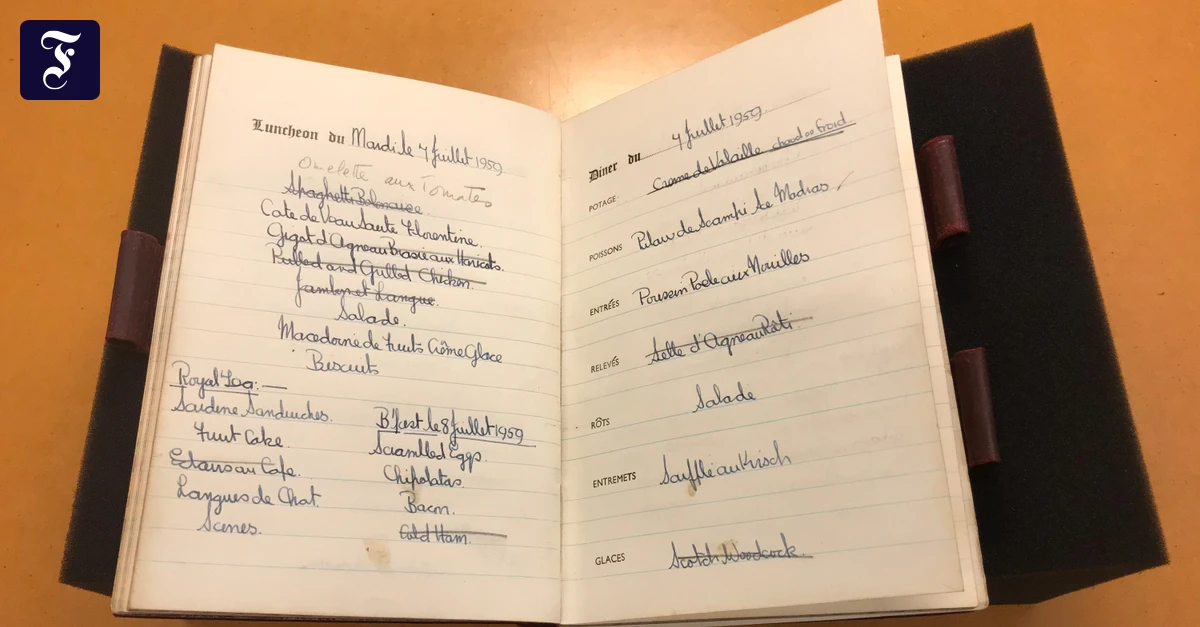 F
Luncheon du Mardi le 7 Juillet 1959
Omelette aux Tomates
Spaghetti Bolonaise.
Cote de Veau Sauté Florentine.
Gigot d'Agneau Braisie aux Haricots.
Pulled and Grilled Chicken.
Jambon et Langue.
Salade.
Macedoine de Fruits Crême Glace
Biscuits
Royal Tea:—
Sardine Sandwiches.
Fruit Cake.
Eclairs au Cafe.
Langues de Chat.
Scones.
B'fast le 8 Juillet 1959
Scrambled Eggs.
Chipolatas.
Bacon.
Cold Ham.
Diner du 7 Juillet 1959
POTAGE Creme de Volaille chaud ou froid
POISSONS Pilaw de Scampi à la Madras
ENTRÉES Poussin Poele aux Nouilles
RELEVÉS Selle d'Agneau Rôti.
RÔTS Salade
ENTREMETS Soufflé au Kirsch
GLACES Scotch Woodcock.